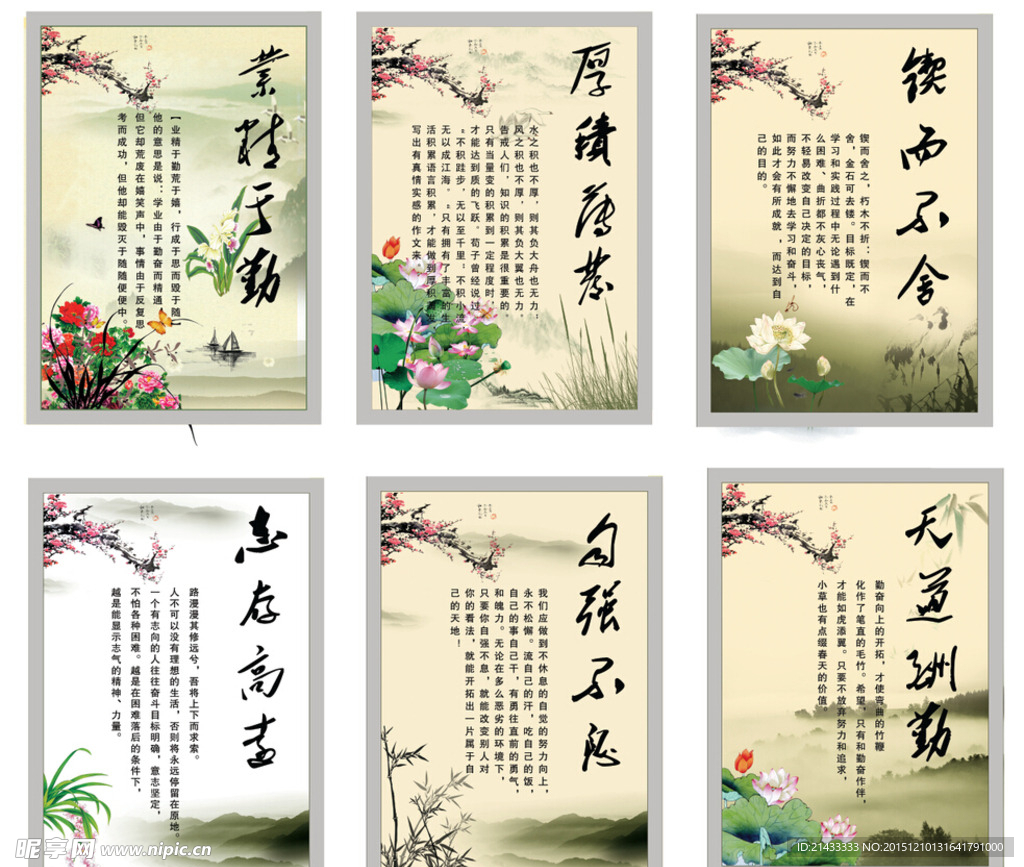 業精于勤
【业精于勤荒于嬉，行成于思而毁于随】
他的意思是说：学业由于勤奋而精通，
但它却荒废在嬉笑声中，事情由于反复思
考而成功，但他却能毁灭于随随便便中。
厚積薄發
水之积也不厚，则其负大舟也无力；
风之积也不厚，则其负大翼也无力
告戒人们，知识的积累是很重要的
只有当量变的积累到一定程度时，
才能达到质的飞跃。荀子曾经说过
“不积跬步，无以至千里；不积小流
无以成江海。”只有拥有了丰富的生
活积累语言积累，才能做到厚积薄发
写出有真情实感的作文来。
锲而不舍
锲而舍之，朽木不折；锲而不
舍，金石可去镂。目标既定，在
学习和实践过程中无论遇到什
么困难、曲折都不灰心丧气，
不轻易改变自己决定的目标，
而努力不懈地去学习和奋斗，
如此才会有所成就，而达到自
己的目的。
志存高远
路漫漫其修远兮，吾将上下而求索。
人不可以没有理想的生活，否则将永远停留在原地。
一个有志向的人往往奋斗目标明确，意志坚定，
不怕各种困难。越是在困难落后的条件下，
越是能显示志气的精神、力量。
自强不息
我们应做到不休息的自觉的努力向上，
永不松懈。流自己的汗，吃自己的饭，
自己的事自己干，有勇往直前的勇气，
和魄力。无论在多么恶劣的环境下，
只要你自强不息，就能改变别人对
你的看法，就能开拓出一片属于自
己的天地！
天道酬勤
勤奋向上的开拓，才使弯曲的竹鞭
化作了笔直的毛竹。希望，只有和勤奋作伴，
才能如虎添翼。只要不放弃努力和追求，
小草也有点缀春天的价值。
昵享网 www.nipic.cn
ID:21433333 NO:20151210131641791000